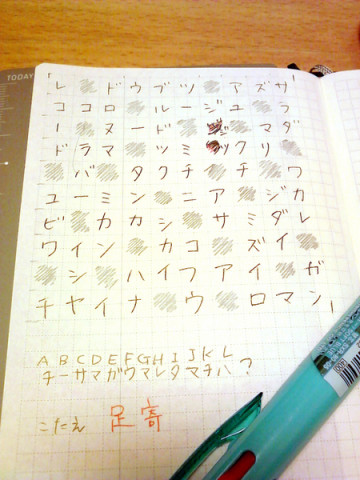 TODAY
レ ドウブツ アズサ
ココロ ルージュ ラ
ー ヌード ジ マダ
ドラマ ツミツクリ
バ タクチ チ ワ
ユーミン ニア ジカ
ビ カカシ サミダレ
ワイン カコ ズイ
シ ハイフアイ ガ
チヤイナ ウ ロマン
A B C D E F G H I J K L
チーサマガウマレタマチハ?
こたえ 足寄